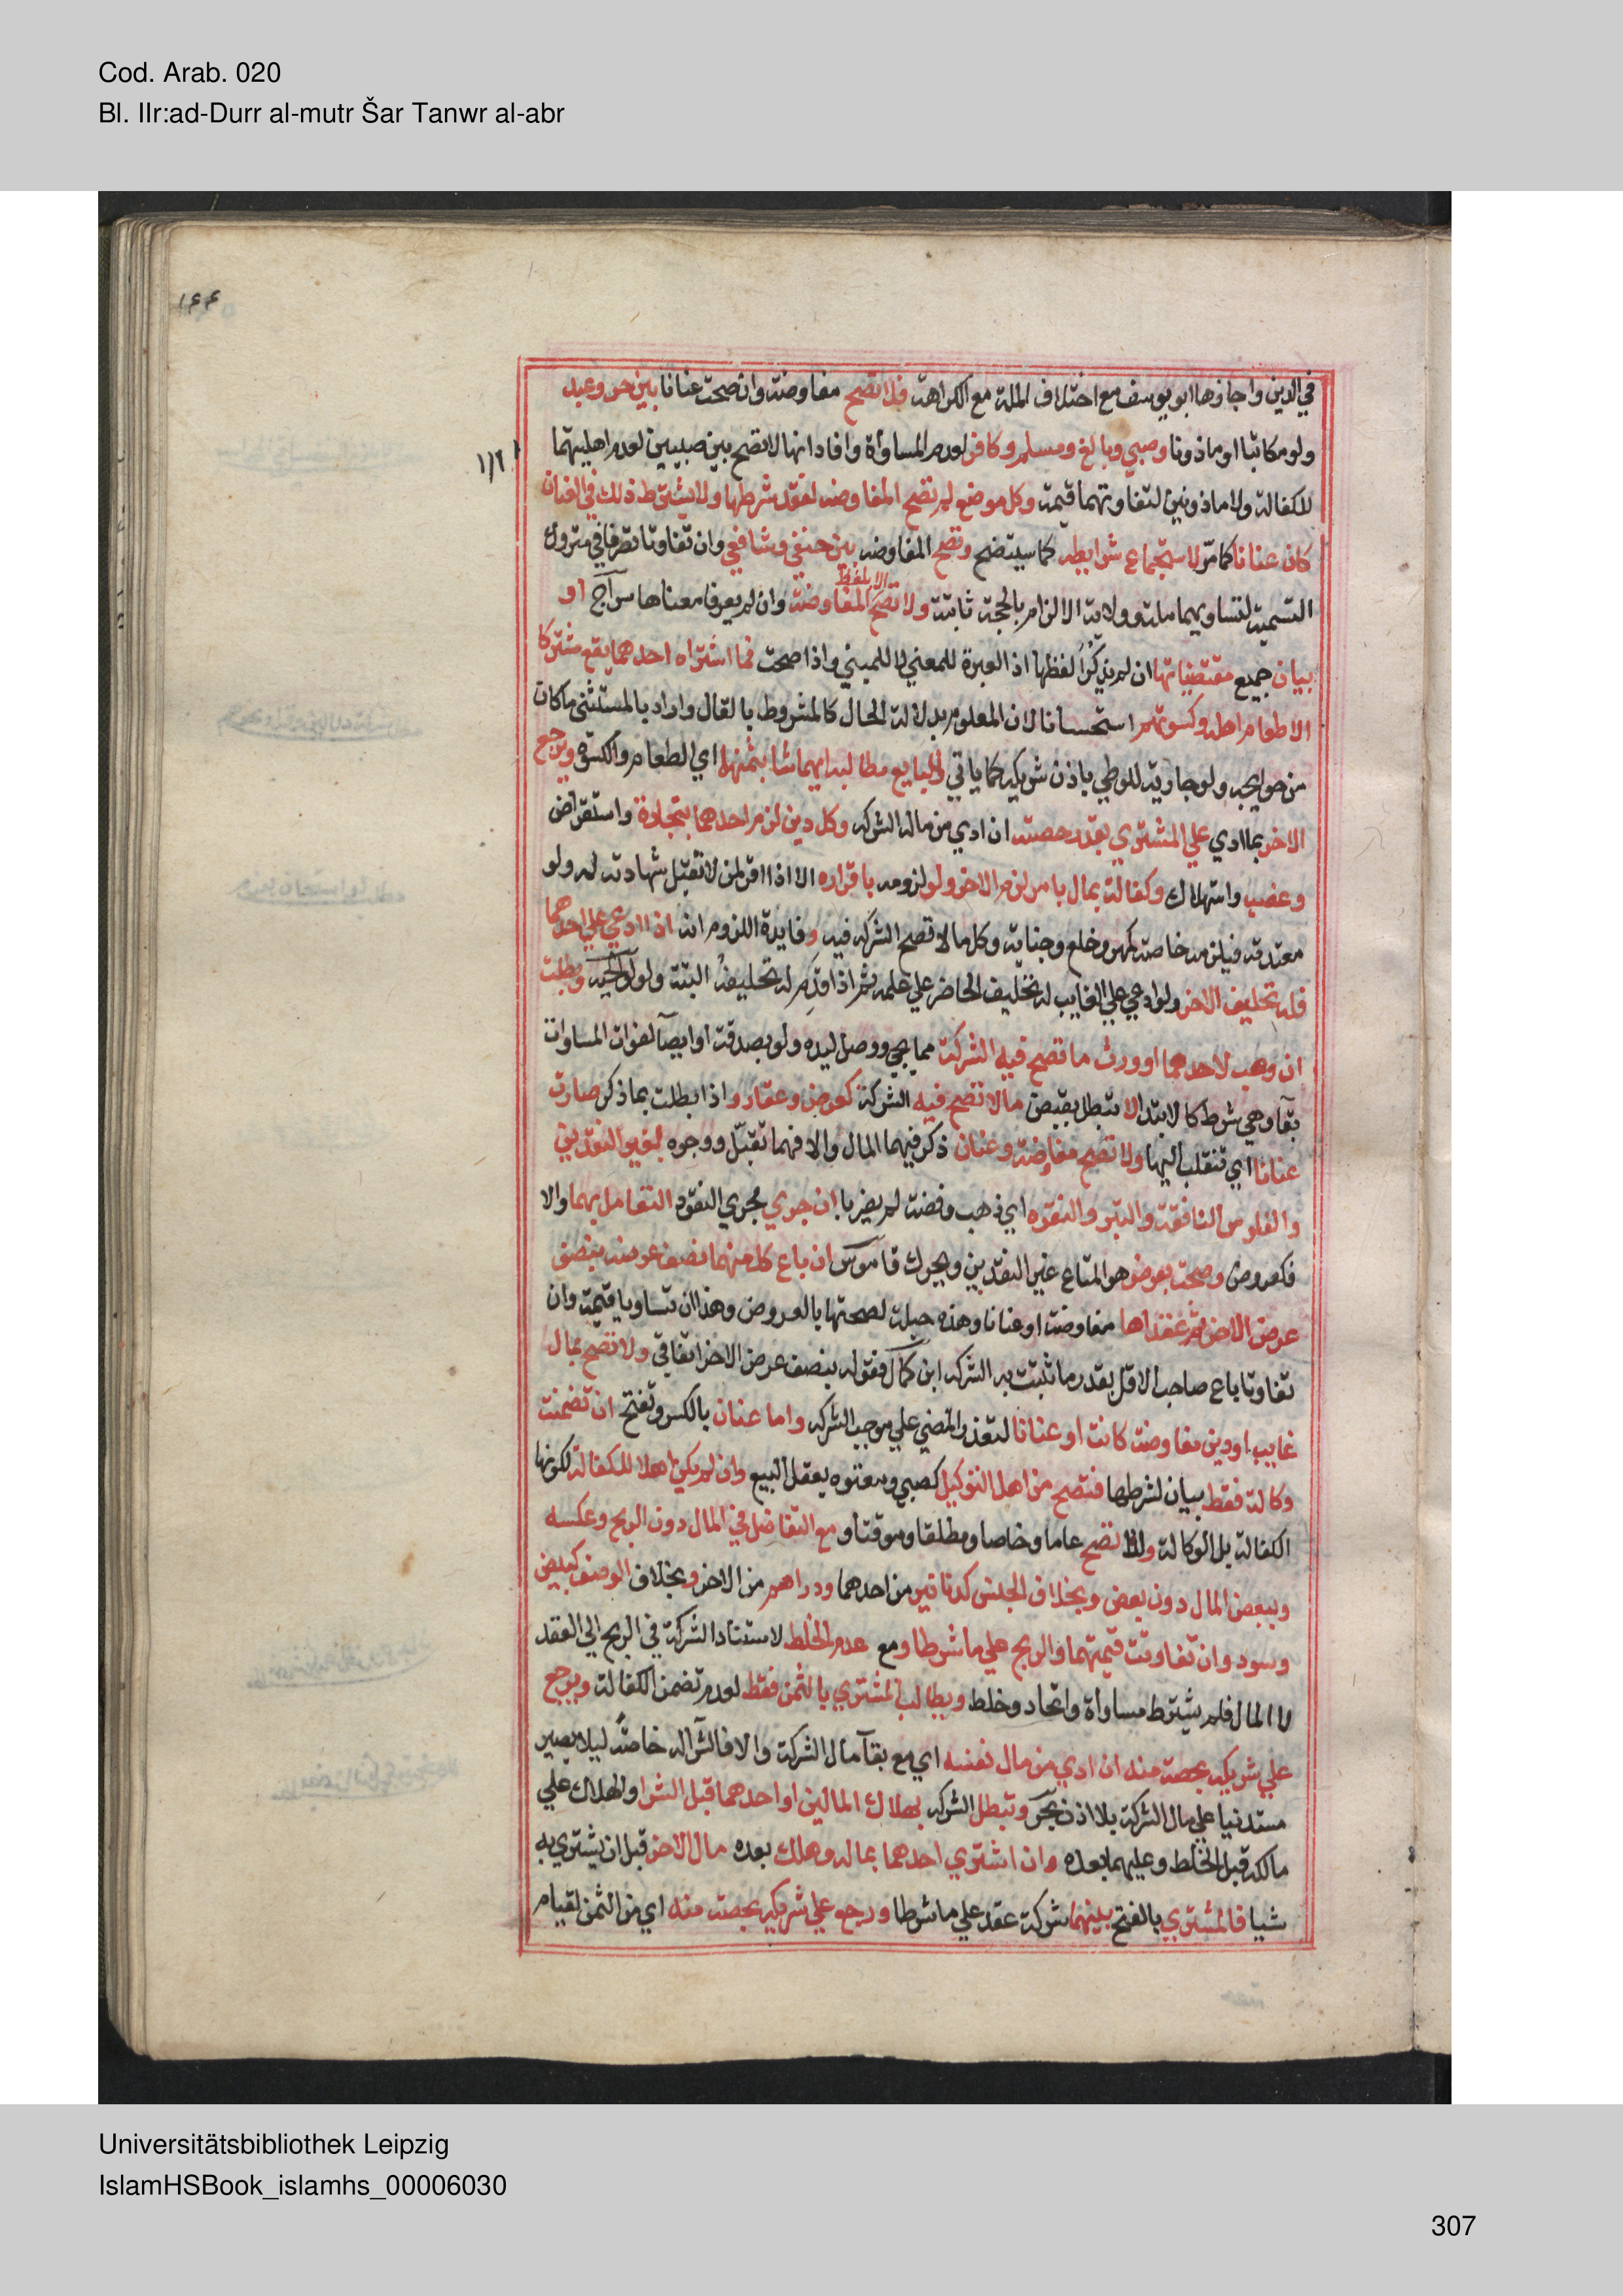 Cod. Arab. 020
Bl. IIr:ad-Durr al-mutr Šar Tanwr al-abr
١٤٤
في الدين واجازها ابو يوسف مع اختلاف الملة مع الكراهة فلا تصح مفاوضة وان صحت عنانا بين حر وعبد
ولو مكاتبا او ماذونا وصبي وبالغ ومسلم وكافر لعدم المساواة وافاد انها لا تصح بين صبيين لعدم اهليتهما
للكفالة ولا ماذونين لتفاوتهما قيمة وكل موضع لم تصح المفاوضه لفقد شرطها ولا يشترط ذلك في العنان
كان عنانا كما مر لاستجماع شرايطه كما سيتضح وتصح المفاوضه بين حنفي وشافعي وان تفاوتا تصرفا في متروك
التسمية لتساويهما ملة وولاية الالزام بالحجة ثابتة ولا تصح المفاوضة الا بلفظ وان لم يعرفا معناها سراج او
بيان جميع مقتضياتها ان لم يذكرا لفظها اذ العبرة للمعني لا للمبني واذا صحت فما اشتراه احدهما يقع مشتركا
الا طعام اهله وكسوتهم استحسانا لان المعلوم بدلالة الحال كالمشروط بالقال واراد بالمستثنى ما كان
من حوايجه ولو جارية للوطي باذن شريكه كما ياتي وللبايع مطالبة ايهما شا بثمنهما اي الطعام والكسوة ويرجع
الاخر بما ادي علي المشتري بقدر حصته ان ادي من مال الشركه وكل دين لزم احدهما بتجارة واستقراض
وغصب واستهلاك وكفالة بمال بامر لزم الاخر ولو لزومه باقراره الا اذا اقر لمن لا تقبل شهادته له ولو
معتدته فيلزمه خاصة كمهر وخلع وجناية وكل ما لا تصح الشركه فيه وفايدة اللزوم انه اذا ادعي علي احدهما
فله تحليف الاخر ولو ادعي علي الغايب له تحليف الحاضر علي علمه ثم اذا قدم له تحليفه البتة ولوالجيه وبطلت
ان وهب لاحدهما او ورث ما تصح فيه الشركة مما يجي ووصل ليده ولو بصدقة او ايصا لفوات المساوات
بقا وهي شرط كالابتدا لا تبطل بقبض ما لا تصح فيه الشركة كعرض وعقار واذا بطلت بما ذكر صارت
عنانا اي تنقلب اليها ولا تصح مفاوضة وعنان ذكر فيهما المال والا فهما تقبل ووجوه لغير النقدين
والفلوس النافقة والتبر والنقره اي ذهب وفضة لم يضربا ان جري مجري النقود التعامل بهما والا
فكعروض وصحت بعرض هو المتاع غير النقدين ويحرك قاموس ان باع كل منهما نصف عرضه بنصف
عرض الاخر ثم عقداها مفاوضة او عنانا وهذه حيلة لصحتها بالعروض وهذا ان تساويا قيمة وان
تفاوتا باع صاحب الاقل بقدر ما تثبت به الشركه ابن كمال فقوله بنصف عرض الاخر اتفاقي ولا تصح بمال
غايب او دين مفاوضة كانت او عنانا لتعذر المضي علي موجب الشركه واما عنان بالكسر وتفتح ان تضمنت
وكالة فقط بيان لشرطها فتصح من اهل التوكيل كصبي ومعتوه يعقل البيع وان لم يكن اهلا للكفالة لكونها
الكفالة بل الوكالة ولذا تصح عاما وخاصا ومطلقا وموقتا ومع التفاضل في المال دون الربح وعكسه
وببعض المال دون بعض وبخلاف الجنس كدنانير من احدهما ودراهم من الاخر وبخلاف الوصف كبيض
وسود وان تفاوتت قيمتهما والربح علي ما شرطا ومع عدم الخلط لاستناد الشركة في الربح الي العقد
لا المال فلم يشترط مساواة واتحاد وخلط ويطالب المشتري بالثمن فقط لعدم تضمن الكفالة ويرجع
علي شريكه بحصته منه ان ادي من مال نفسه اي مع بقا مال الشركة والا فالشرا له خاصة ليلا يصير
مستدينا علي مال الشركة بلا اذن بحر وتبطل الشركه بهلاك المالين او احدهما قبل الشرا والهلاك علي
مالكه قبل الخلط وعليهما بعده وان اشتري احدهما بماله وهلك بعده مال الاخر قبل ان يشتري به
شيا فالمشتري بالفتح بينهما شركة عقد علي ما شرطا ورجع علي شريكه بحصته منه اي من الثمن لقيام
Universitätsbibliothek Leipzig
IslamHSBook_islamhs_00006030
307